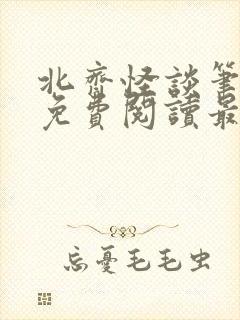 北齊怪談筆
免費閱讀最
忘憂毛毛虫